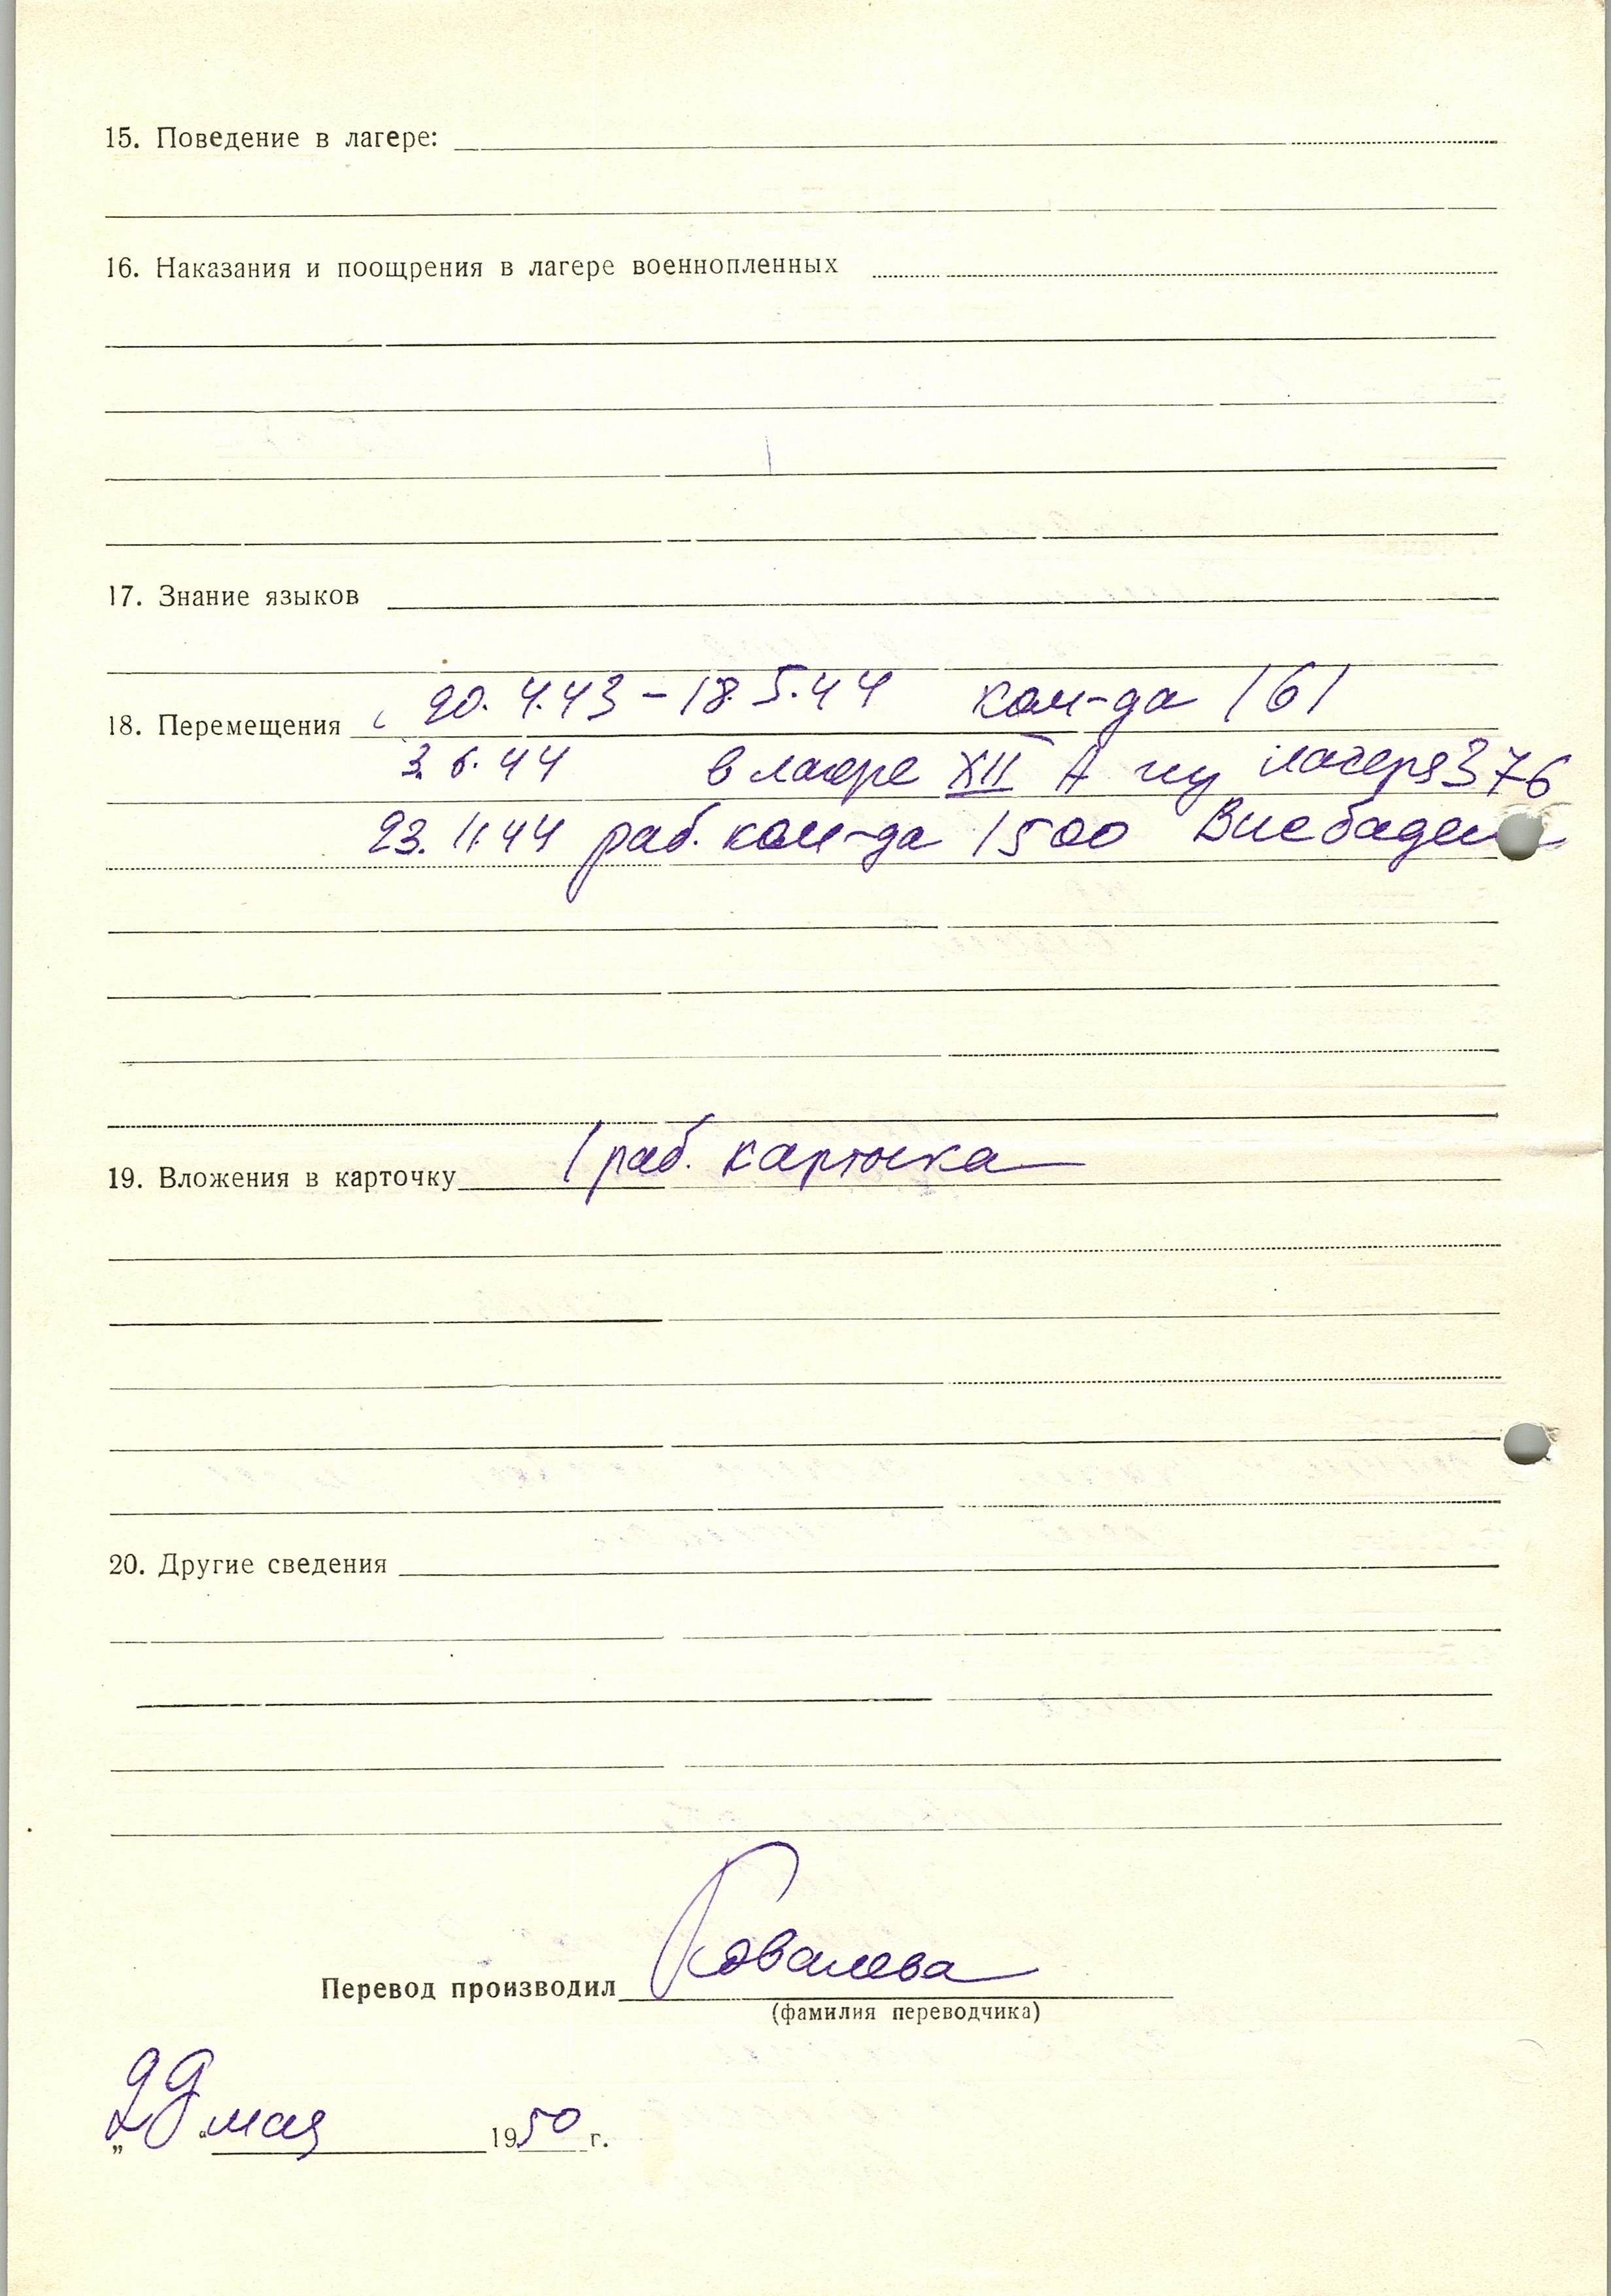 15. Поведение в лагере:
16. Наказания и поощрения в лагере военнопленных
17. Знание языков
18. Перемещения с 20.4.43 – 18.5.44 ком-да 161
3.6.44 в лагере XII А из лагеря 376
23.11.44 раб. ком-да 1500 Висбаден
19. Вложения в карточку 1 раб. карточка
20. Другие сведения
Перевод производил Ковалева
(фамилия переводчика)
„29“ мая 1950 г.